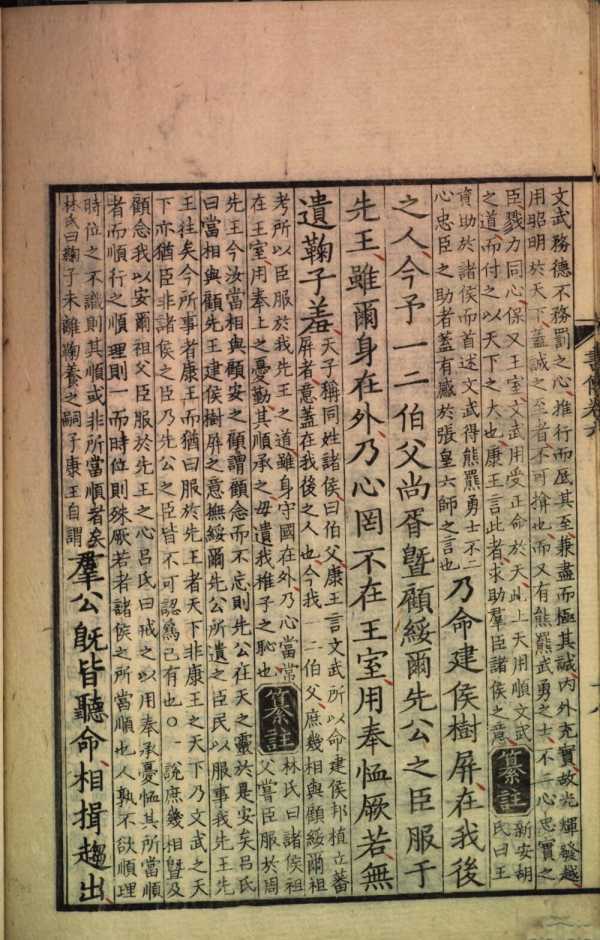 文武務德不務罰之心推行而厎其至兼盡而極其誠内外充實故光輝發越
用昭明於天下蓋誠之至者不可揜也而又有熊羆武勇之士不二心忠實之
臣戮力同心保乂王室文武用受正命於天此上天用順文武
之道而付之以天下之大也康王言此者求助羣臣諸侯之意
纂註
新安胡
氏曰王
資助於諸侯而首述文武得熊羆勇士不二
心忠臣之助者蓋有感於張皇六師之言也
乃命建侯樹屏在我後
之人今予一二伯父尚胥暨顧綏爾先公之臣服于
先王雖爾身在外乃心罔不在王室用奉恤厥若無
遺鞠子羞
天子稱同姓諸侯曰伯父康王言文武所以命建侯邦植立蕃
屏者意蓋在我後之人也今我一二伯父庶幾相與顧綏爾祖
考所以臣服於我先王之道雖身守國在外乃心當常
在王室用奉上之憂勤其順承之毋遺我稚子之恥也
纂註
林氏曰諸侯祖
父嘗臣服於周
先王今汝當相與顧安之顧謂顧念而不忘則先公在天之靈於是安矣吕氏
曰當相與顧先王建侯樹屏之意撫綏爾先公所遺之臣民以服事我先王先
王往矣今所事者康王而猶曰服於先王者天下非康王之天下乃文武之天
下亦猶臣非諸侯之臣乃先公之臣皆不可認爲己有也○一說庶幾相曁及
顧念我以安爾祖父臣服於先王之心吕氏曰戒之以用奉憂恤其所當順
者而順行之順理則一而時位則殊厥若者諸侯之所當順也人孰不欲順理
時位之不識則其順或非所當順者矣
林氏曰鞠子未離鞠養之嗣子康王自謂
羣公旣皆聽命相揖趨出